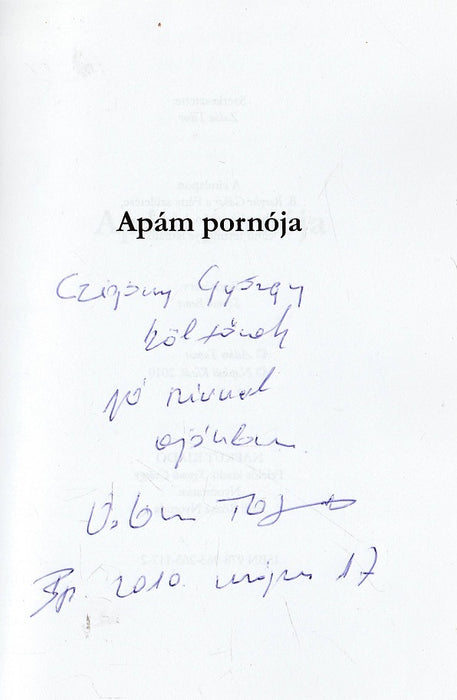 Apám pornója
Czigány György
költőnek
jó szívvel
ajánlom
Bp. 2010. május 17